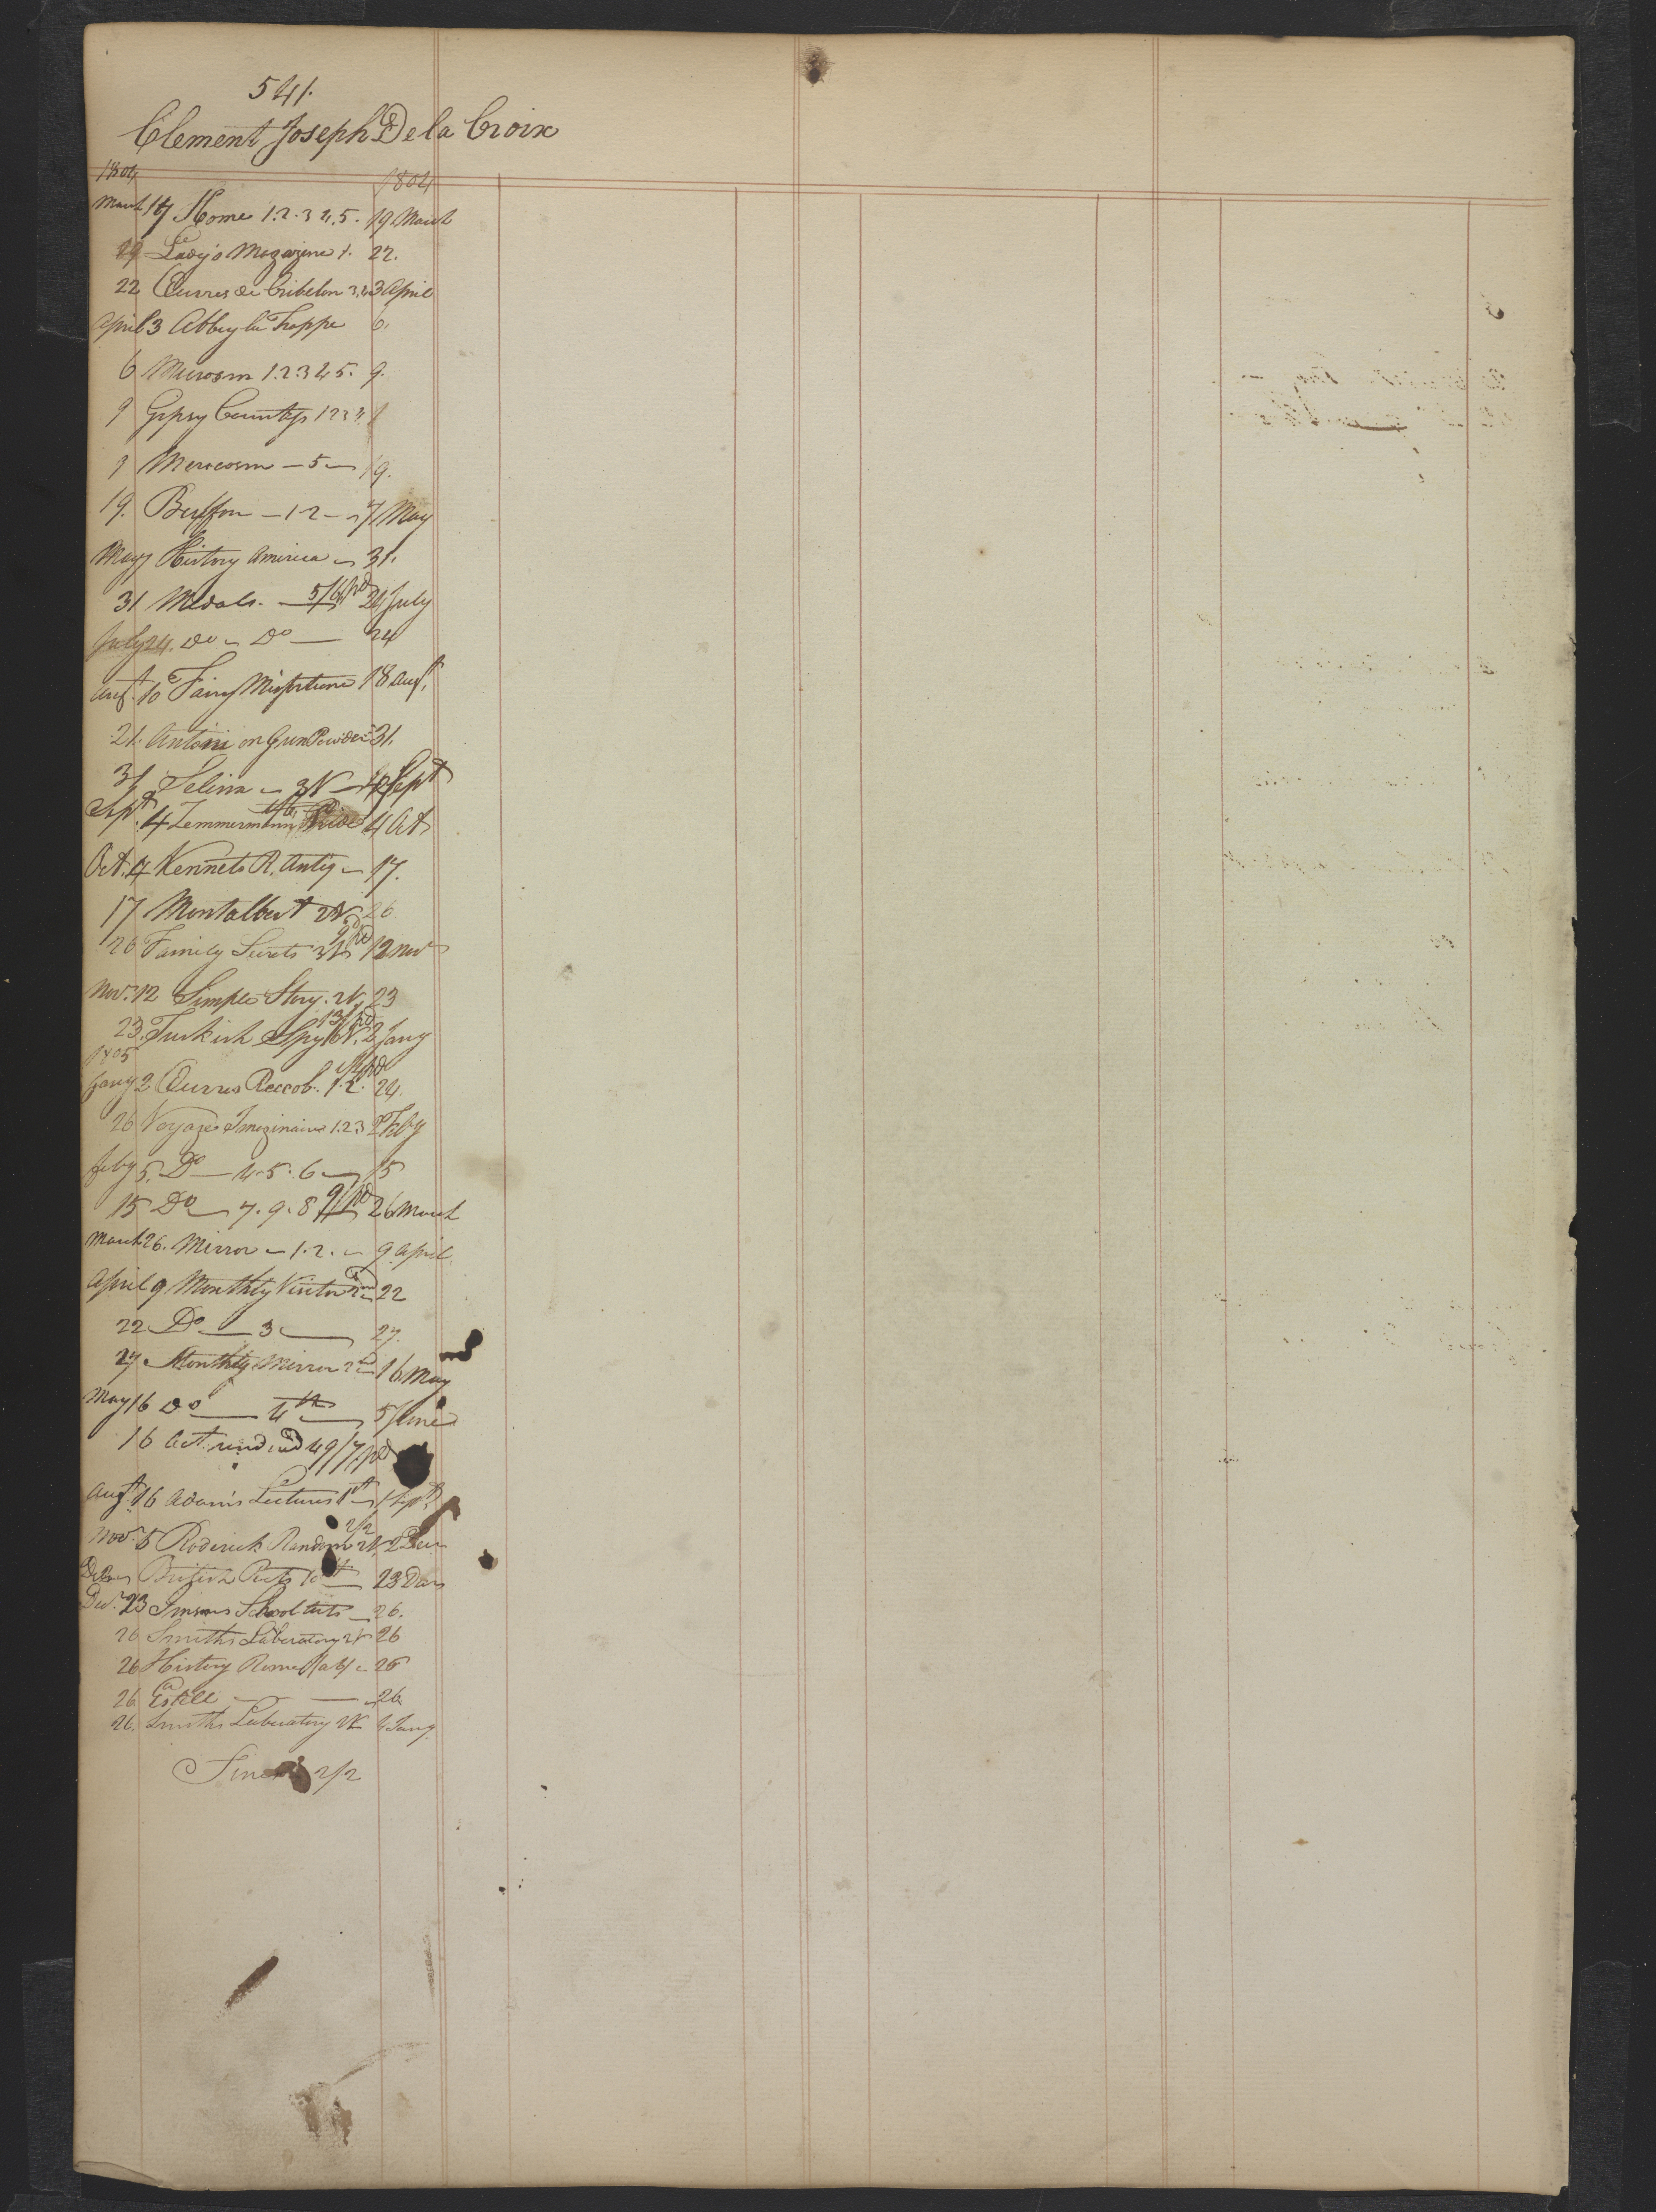 541.
Clement Joseph De la Croix
1804 1804
March 17 Home 1.2.3 4.5. 19 March
19 Lady's Magazine 1. 22.
22 Œuvres de Cribelon 3,4 3 April
April 3 Abbey la Trappe 6.
6 Microsm 1.2 3 4 5. 9.
9 Gypsy Countess 1 2 3
9 Merocosm — 5 — 19.
19. Buffon — 1-2 — 7 May
May 7 History America — 31.
31 Medals. — 5/6 pd 24 July
July 24. Do — Do — 24
Augt. 10 Fairy Misfortune 18 Augt.
21. Antoni on Gun Powder 31.
31 Selina — 3V — Sept
Sept. 4 Zemmermann 4 Oct
Oct. 4 Kennets R. Antiq — 17.
17 Montalbert 2V 26
26 Family Secrets 3V pd 12 Nov
Nov. 12 Simple Story. 2V, 23
23. Turkish Spy 6V. 13/ pd 2 Jany
1805
Jany 2 Œuvres Reccob. 1.2. pd 24.
26 Voyages Imaginaire 1.2 3 Feby
Feby 5. Do — 4.5.6 — 15
15 Do — 7.9.8 9/ pd 26 March
March 26. Mirror — 1.2. — 9 April
April 9 Monthly Visitor 2nd 22
22 Do — 3 — 27.
27. Monthly Mirror 16 May
May 16 Do — 4th — 5 June
16 Act rendered 49/7 pd
Augt 16 Adam's Lectures 1st — 1 Sept.
Nov. 5 Roderick Random 2V 2/2 2 Decr
British Poets 10th — 23 Decr
Decr. 23 School — 26.
26 Smiths Laboratory 2V 26
26 History Rome (ab) — 26
26 Estell — — 26
26. Smiths Laboratory 2V 4 Jany.
2/2